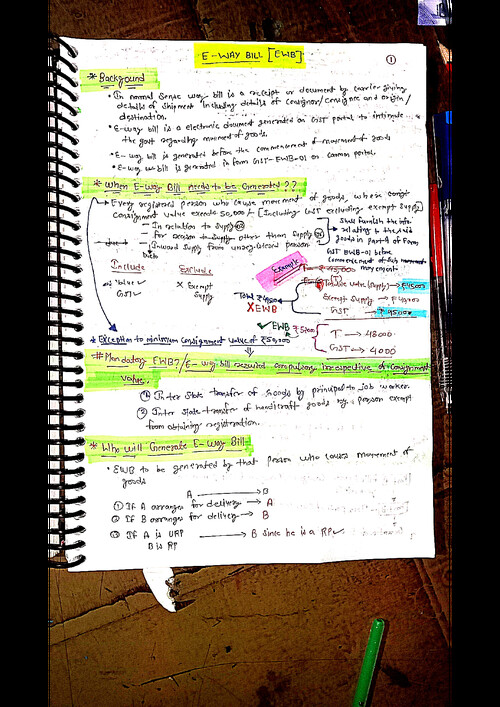 E-WAY BILL [EWB]
①
* Background
• In normal sense way bill is a receipt or document by carrier giving
details of shipment including details of consignor/consignee and origin/
destination.
• E-way bill is a electronic document generated on GST portal to intimate
the govt regarding movement of goods.
• E-way bill is generated before the commencement of movement of goods
• E-way bill is generated in form GST-EWB-01 on common portal.
* When E-way Bill needs to be Generated??
Every registered person who cause movement of goods, whose
consignment value exceeds 50,000/- [Including GST excluding exempt supply]
— In relation to supply OR
— for reason other than supply OR
— Inward supply from unregistered person
Shall furnish the info
relating to the said
goods in part A of form
GST EWB-01 before
commencement of such movement
Include
Exclude
Value ✓
GST ✓
X Exempt
Supply
Example
Value (supply) → ₹45000
Exempt Supply →
GST →
Total ₹
X EWB
✓ EWB
T → 48000
GST → 4000
* Exception to minimum consignment value of ₹50,000
# Mandatory EWB?/E-way bill required compulsory irrespective of consignment
value.
① Inter State transfer of goods by principal to job worker.
② Inter state transfer of handicraft goods by a person exempt
from obtaining registration.
* Who will Generate E-way Bill
• EWB to be generated by that person who causes movement of
goods
A → B
① If A arranges for delivery → A
② If B arranges for delivery → B
③ If A is URP → B since he is a RP ✓
B is RP